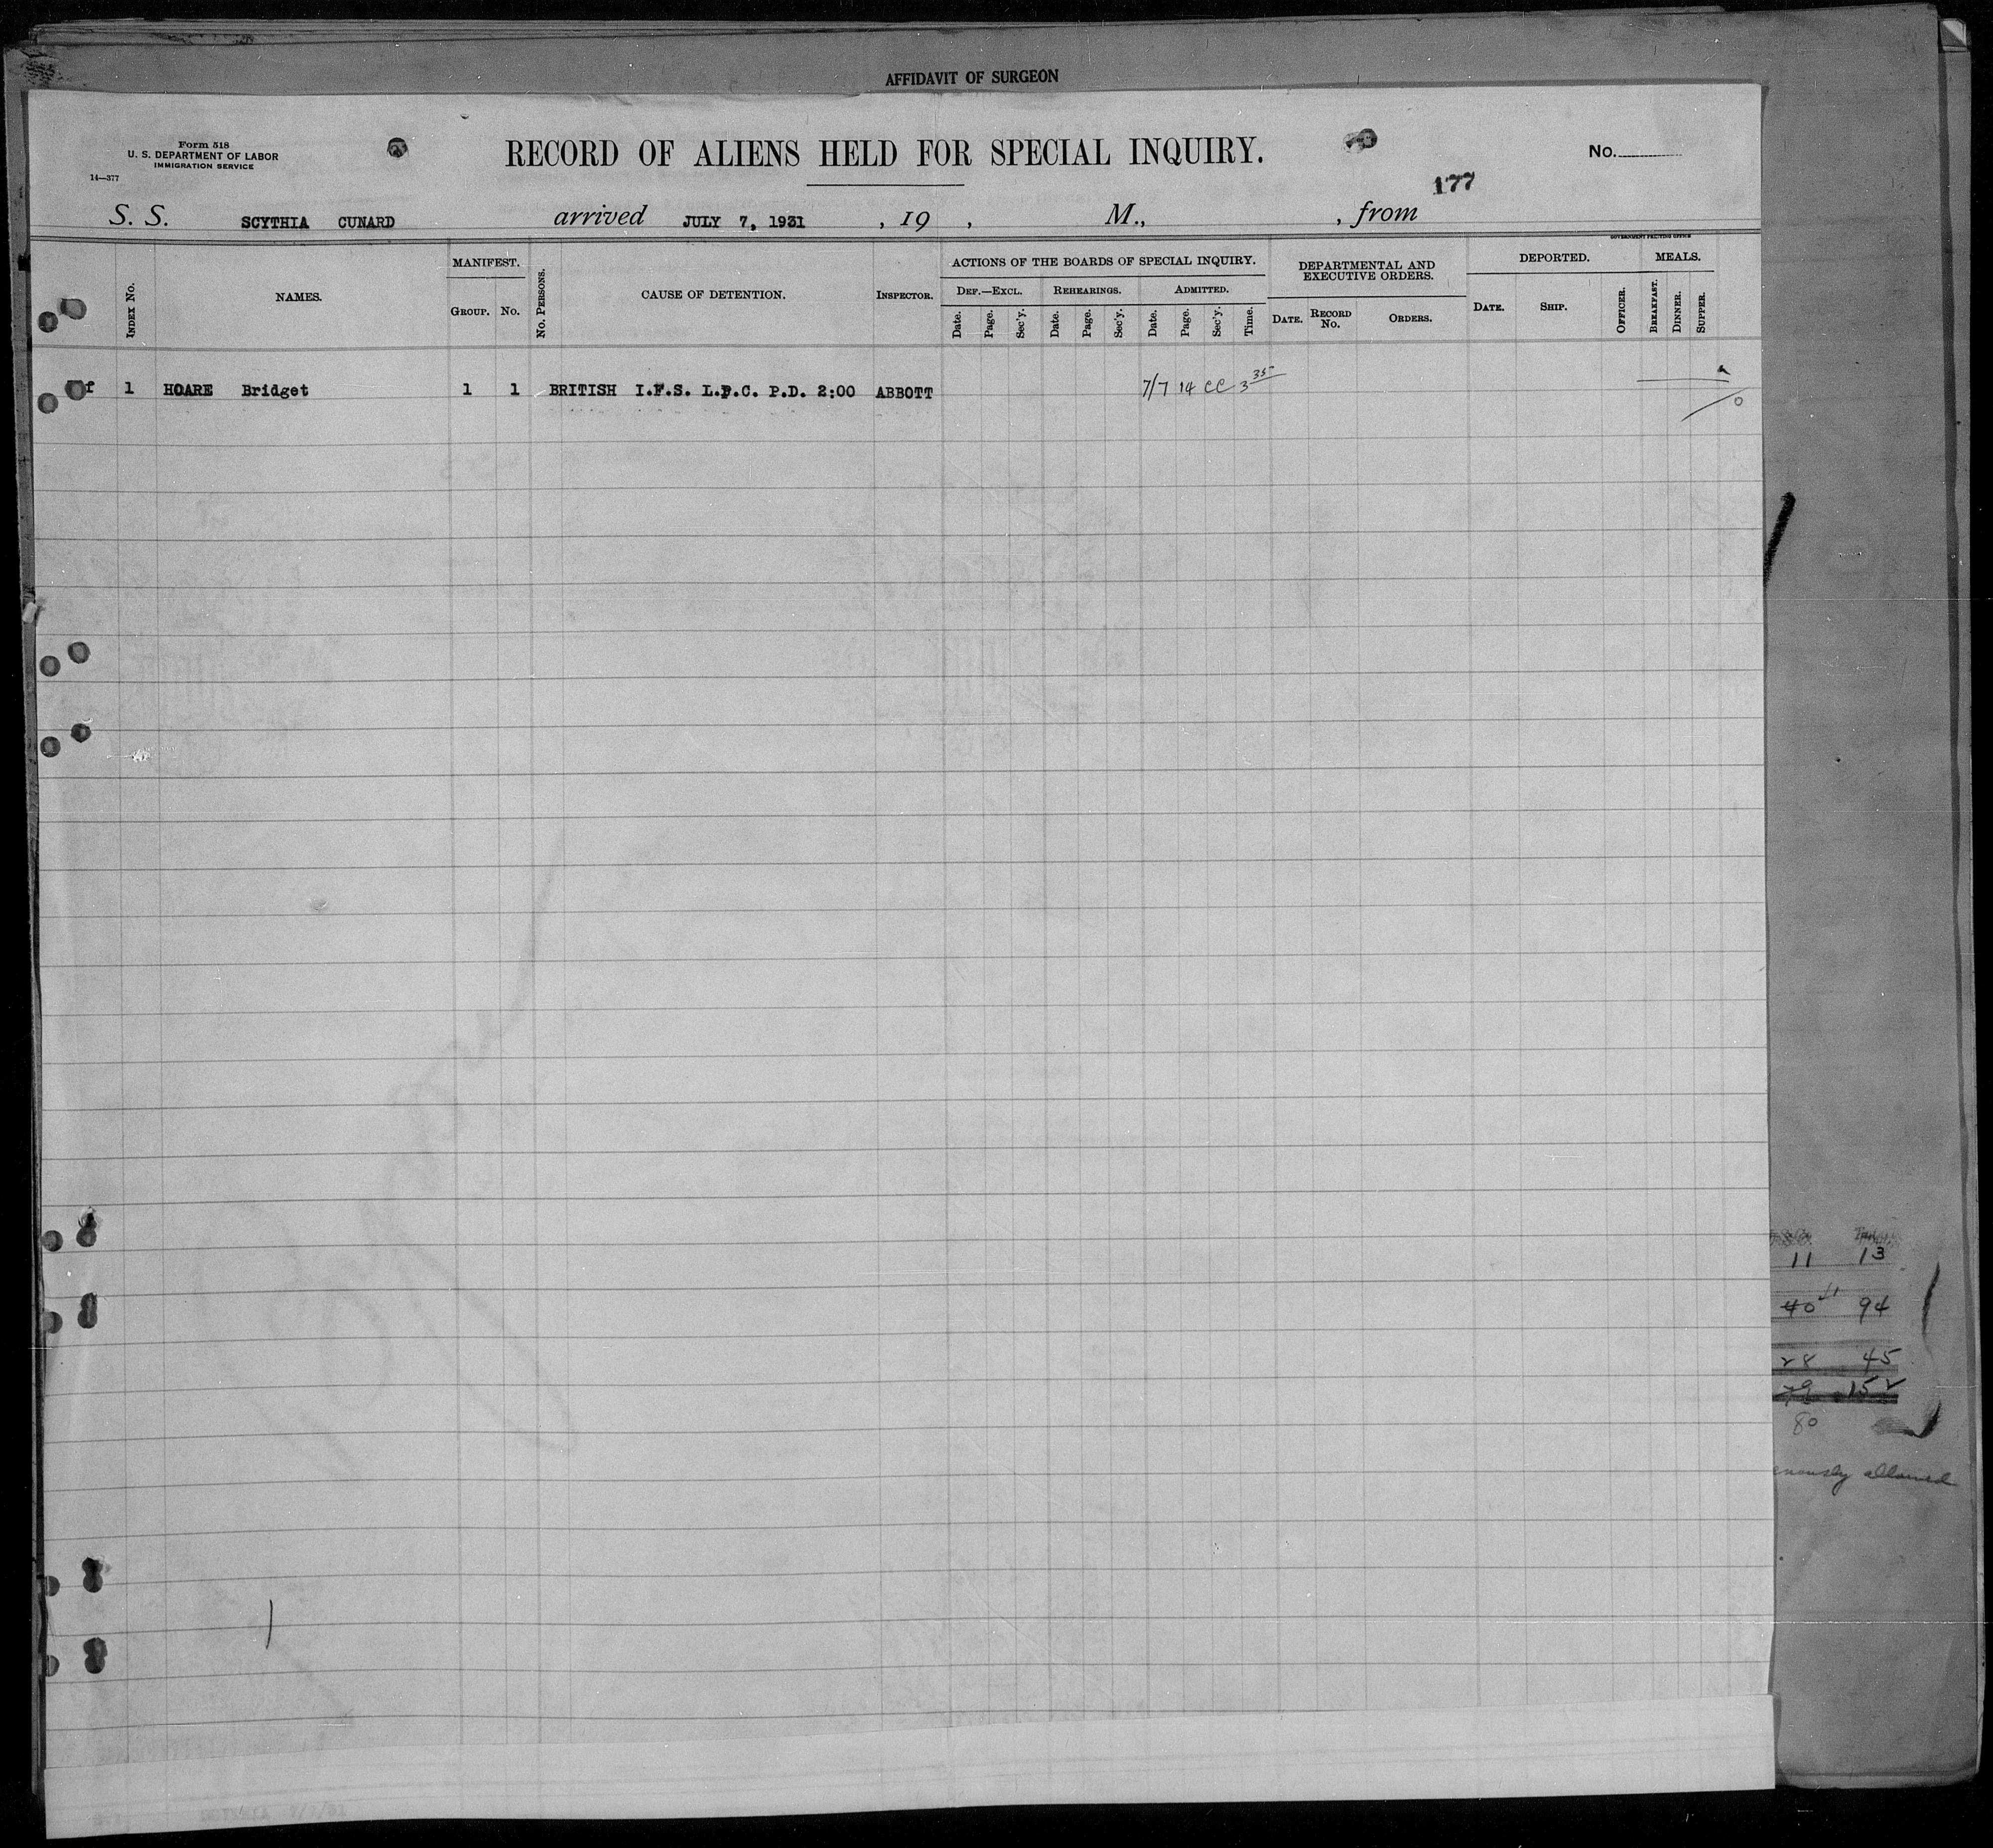 AFFIDAVIT OF SURGEON
Form 518
U. S. DEPARTMENT OF LABOR
IMMIGRATION SERVICE
14—377
RECORD OF ALIENS HELD FOR SPECIAL INQUIRY.
No.
177
S. S. SCYTHIA CUNARD arrived JULY 7, 1931 , 19 , M., , from
GOVERNMENT PRINTING OFFICE
INDEX No.
NAMES.
MANIFEST.
GROUP. No.
No. PERSONS.
CAUSE OF DETENTION.
INSPECTOR.
ACTIONS OF THE BOARDS OF SPECIAL INQUIRY.
DEF.—EXCL. REHEARINGS. ADMITTED.
Date. Page. Sec'y. Date. Page. Sec'y. Date. Page. Sec'y. Time.
DEPARTMENTAL AND
EXECUTIVE ORDERS.
DATE. RECORD No. ORDERS.
DEPORTED.
DATE. SHIP. OFFICER.
MEALS.
BREAKFAST. DINNER. SUPPER.
f 1 HOARE Bridget 1 1 BRITISH I.F.S. L.P.C. P.D. 2:00 ABBOTT 7/7 14 CC 3 35
0
11 13
40 41 94
28 45
79 152
80
allowed